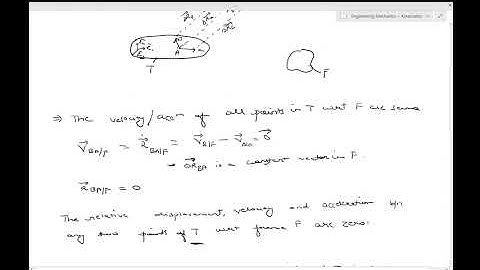 Engineering Mechanics – Kinematics
A
T
F
⇒ The velocity/accn of all points in T wrt F are same
V⃗BA/F = ṙ⃗BA/F = V⃗B/F − V⃗A/F = 0⃗
→ r⃗BA is a constant vector in F.
a⃗BA/F = 0
The relative displacement, velocity and acceleration b/n
any two points of T wrt frame F are zero.